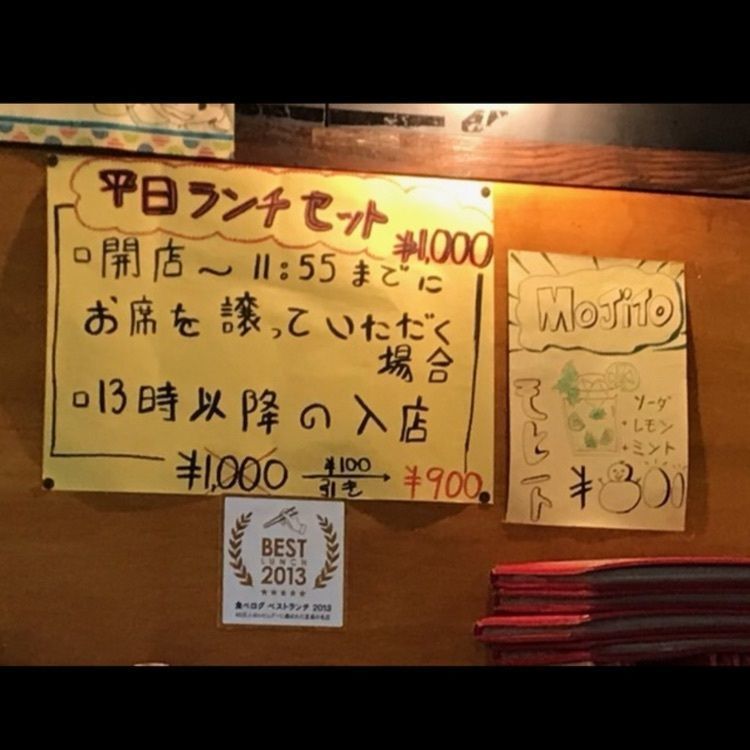 平日ランチセット
¥1,000
□開店〜11:55までに
お席を譲っていただく
場合
□13時以降の入店
¥1,000 ¥100引き → ¥900
MOJITO
モヒート
ソーダ
+レモン
+ミント
¥800
BEST
LUNCH
2013
★★★★★
食べログ ベストランチ 2013